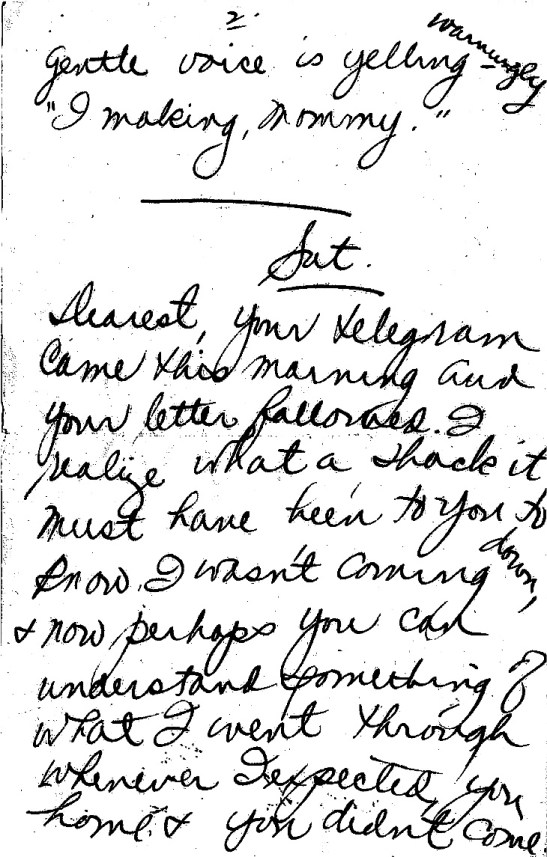 2.
gentle voice is yelling warningly
"I making, Mommy."
Sat.
Dearest, your telegram
came this morning and
your letter followed. I
realize what a shock it
must have been to you to
know I wasn't coming down,
& now perhaps you can
understand something of
what I went through
whenever I expected you
home & you didn't come.